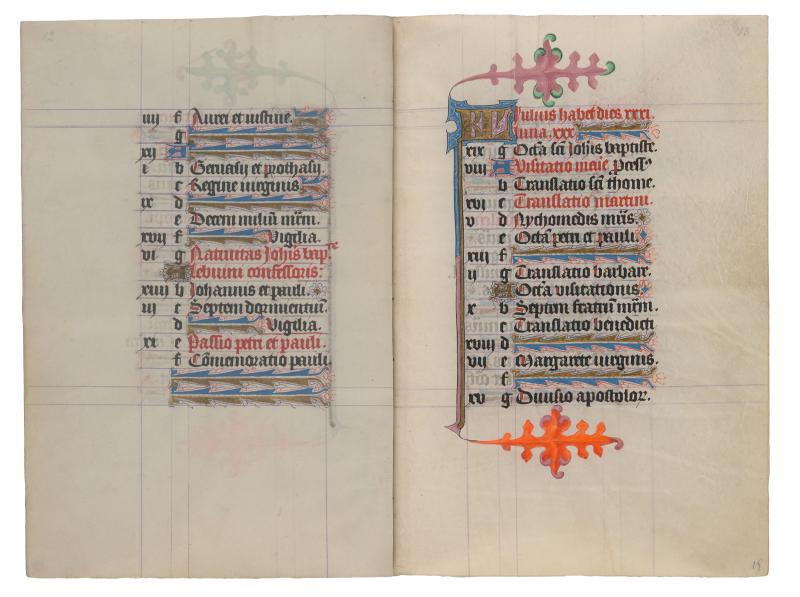 12
iiij f Aurei et iustine.
g
xij A
i b Geruasij et prothasij
c Regine uirginis
ix d
e Decem miliū mr̄m.
xvij f Vigilia.
vi g Natiuitas Joh̄is bap^te
A Lebuini confessoris:
xiiij b Johannis et pauli.
iij c Septem dormientiū.
d Vigilia.
xx e Passio petri et pauli.
f Cōmemoratio pauli.
13
KL Julius habet dies xxxi.
luna. xxx
xix g Octā sc̄i Joh̄is baptiste.
viij A Visitatio marie
b Translatio sc̄i thome.
xvi c Translatio martini.
v d Nychomedis mr̄is.
e Octā petri et pauli.
xiij f
ij g Translatio barbare.
A Octā visitationis.
x b Septem fratrū mr̄m.
c Translatio benedicti
xviij d
vij e Margarete uirginis.
f
xv g Diuisio apostolor.